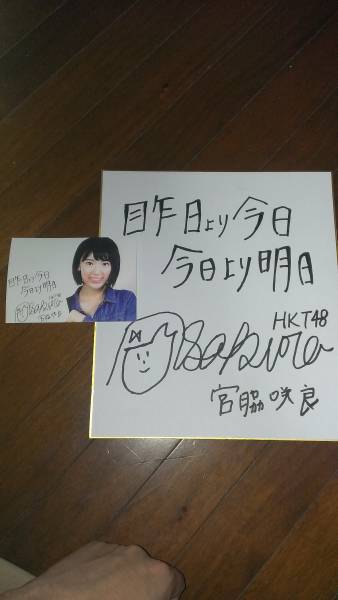 昨日より今日
今日より明日
HKT48
Sakura
宮脇咲良
昨日より今日
今日より明日
HKT48
Sakura
宮脇咲良